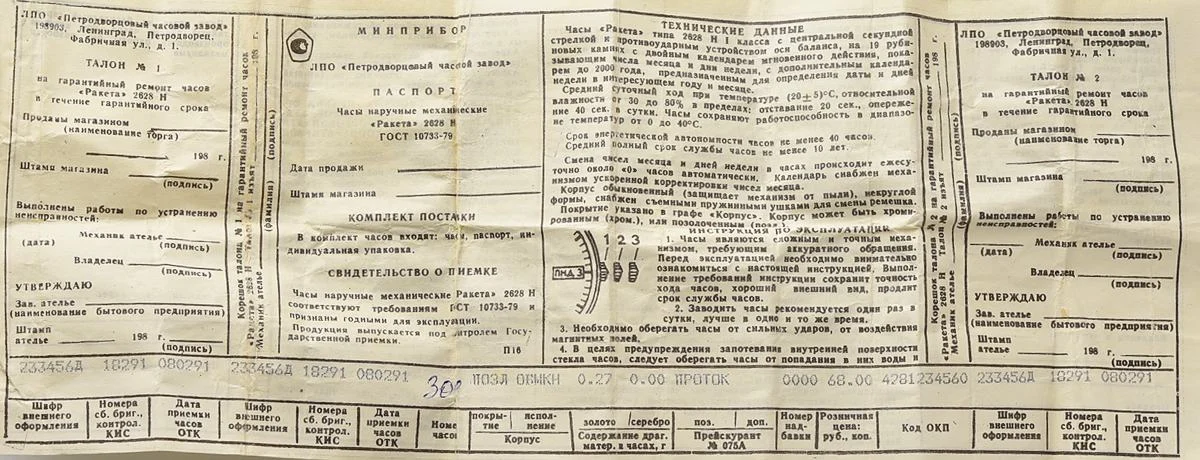 ЛПО «Петродворцовый часовой завод»
198903, Ленинград, Петродворец,
Фабричная ул., д. 1.
ТАЛОН № 1
на гарантийный ремонт часов
«Ракета» 2628 Н
в течение гарантийного срока
Проданы магазином
(наименование торга)
198 г.
Штамп магазина
(подпись)
Выполнены работы по устранению
неисправностей:
Механик ателье
(дата) (подпись)
Владелец
(подпись)
УТВЕРЖДАЮ
Зав. ателье
(наименование бытового предприятия)
Штамп
ателье 198 г.
(подпись)
Корешок талона № 1 на гарантийный ремонт часов
«Ракета» 2628 Н Талон № 1 изъят 198 г.
Механик ателье
(фамилия) (подпись)
МИНПРИБОР
ЛПО «Петродворцовый часовой завод»
ПАСПОРТ
Часы наручные механические
«Ракета» 2628 Н
ГОСТ 10733-79
Дата продажи
Штамп магазина
КОМПЛЕКТ ПОСТАВКИ
В комплект часов входят: часы, паспорт, ин-
дивидуальная упаковка.
СВИДЕТЕЛЬСТВО О ПРИЕМКЕ
Часы наручные механические Ракета» 2628 Н
соответствуют требованиям ГОСТ 10733-79 и
признаны годными для эксплуатации.
Продукция выпускается под контролем Госу-
дарственной приемки.
П16
ТЕХНИЧЕСКИЕ ДАННЫЕ
Часы «Ракета» типа 2628 Н I класса с центральной секундной
стрелкой и противоударным устройством оси баланса, на 19 руби-
новых камнях с двойным календарем мгновенного действия, пока-
зывающим числа месяца и дни недели, с дополнительным календа-
рем до 2000 года, предназначенным для определения даты и дней
недели в интересующем году и месяце.
Средний суточный ход при температуре (20±5)°С, относительной
влажности от 30 до 80% в пределах: отставание 20 сек., опереже-
ние 40 сек. в сутки. Часы сохраняют работоспособность в диапазо-
не температур от 0 до 40°С.
Срок энергетической автономности часов не менее 40 часов.
Средний полный срок службы часов не менее 10 лет.
Смена чисел месяца и дней недели в часах происходит ежесу-
точно около «0» часов автоматически. Календарь снабжен меха-
низмом ускоренной корректировки чисел месяца.
Корпус обыкновенный (защищает механизм от пыли), некруглой
формы, снабжен съемными пружинными ушками для смены ремешка.
Покрытие указано в графе «Корпус». Корпус может быть хроми-
рованным (хром.), или позолоченным (позл.)
ИНСТРУКЦИЯ ПО ЭКСПЛУАТАЦИИ
1 2 3
ПНД 3
1. Часы являются сложным и точным меха-
низмом, требующим аккуратного обращения.
Перед эксплуатацией необходимо внимательно
ознакомиться с настоящей инструкцией. Выпол-
нение требований инструкции сохранит точность
хода часов, хороший внешний вид, продлит
срок службы часов.
2. Заводить часы рекомендуется один раз в
сутки, лучше в одно и то же время.
3. Необходимо оберегать часы от сильных ударов, от воздействия
магнитных полей.
4. В целях предупреждения запотевания внутренней поверхности
стекла часов, следует оберегать часы от попадания в них воды и
Корешок талона № 2 на гарантийный ремонт часов
«Ракета» 2628 Н Талон № 2 изъят 198 г.
Механик ателье
(фамилия) (подпись)
ЛПО «Петродворцовый часовой завод»
198903, Ленинград, Петродворец,
Фабричная ул., д. 1.
ТАЛОН № 2
на гарантийный ремонт часов
«Ракета» 2628 Н
в течение гарантийного срока
Проданы магазином
(наименование торга)
198 г.
Штамп магазина
(подпись)
Выполнены работы по устранению
неисправностей:
Механик ателье
(дата) (подпись)
Владелец
(подпись)
УТВЕРЖДАЮ
Зав. ателье
(наименование бытового предприятия)
Штамп
ателье 198 г.
(подпись)
233456Д 18291 080291 233456Д 18291 080291 ПОЗЛ ОБЫКН 0.27 0.00 ПРОТОК 0000 68.00 4281234560 233456Д 18291 080291
Шифр внешнего оформления
Номера сб. бриг., контрол. КИС
Дата приемки часов ОТК
Шифр внешнего оформления
Номера сб. бриг., контрол. КИС
Дата приемки часов ОТК
покры-тие
испол-нение
Корпус
золото /серебро
Содержание драг. матер. в часах, г
поз. / доп.
Прейскурант № 075А
Номер над-бавки
Розничная цена: руб., коп.
Код ОКП
Шифр внешнего оформления
Номера сб. бриг., контрол. КИС
Дата приемки часов ОТК